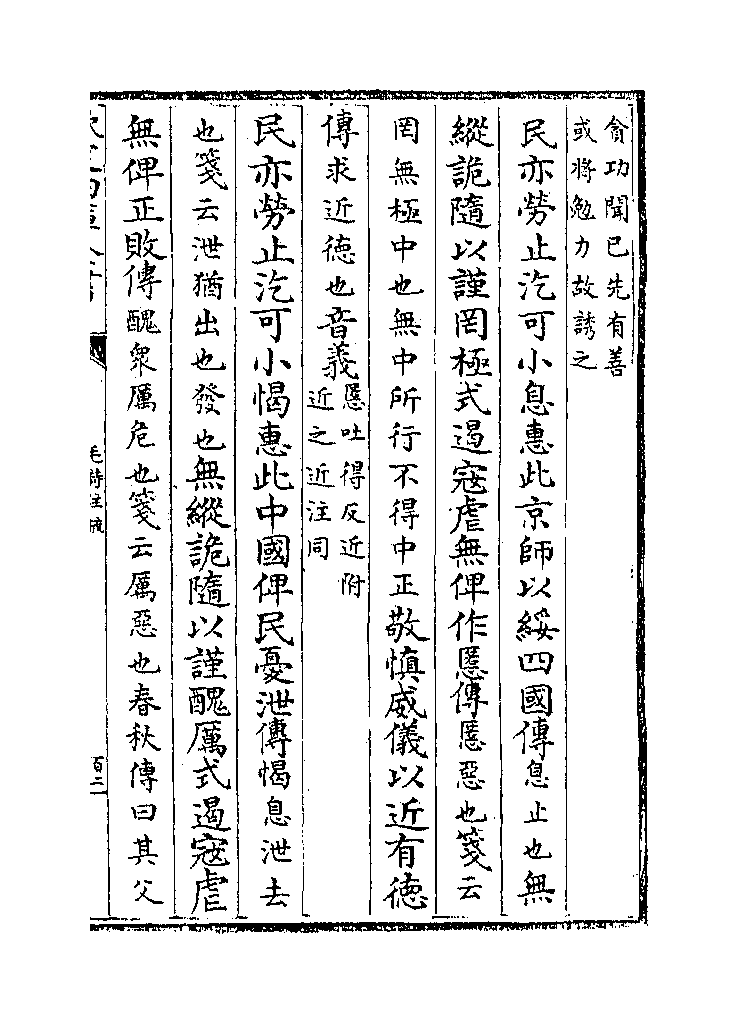 貪功聞己先有善
或將勉力故誘之
民亦勞止汔可小息惠此京師以綏四國傳息止也無
縱詭隨以謹罔極式遏寇虐無俾作慝傳慝惡也箋云
罔無極中也無中所行不得中正敬慎威儀以近有德
傳求近德也音義慝吐得反近附
近之近注同
民亦勞止汔可小愒惠此中國俾民憂泄傳愒息泄去
也箋云泄猶出也發也無縱詭隨以謹醜厲式遏寇虐
無俾正敗傳醜衆厲危也箋云厲惡也春秋傳曰其父
毛詩注疏